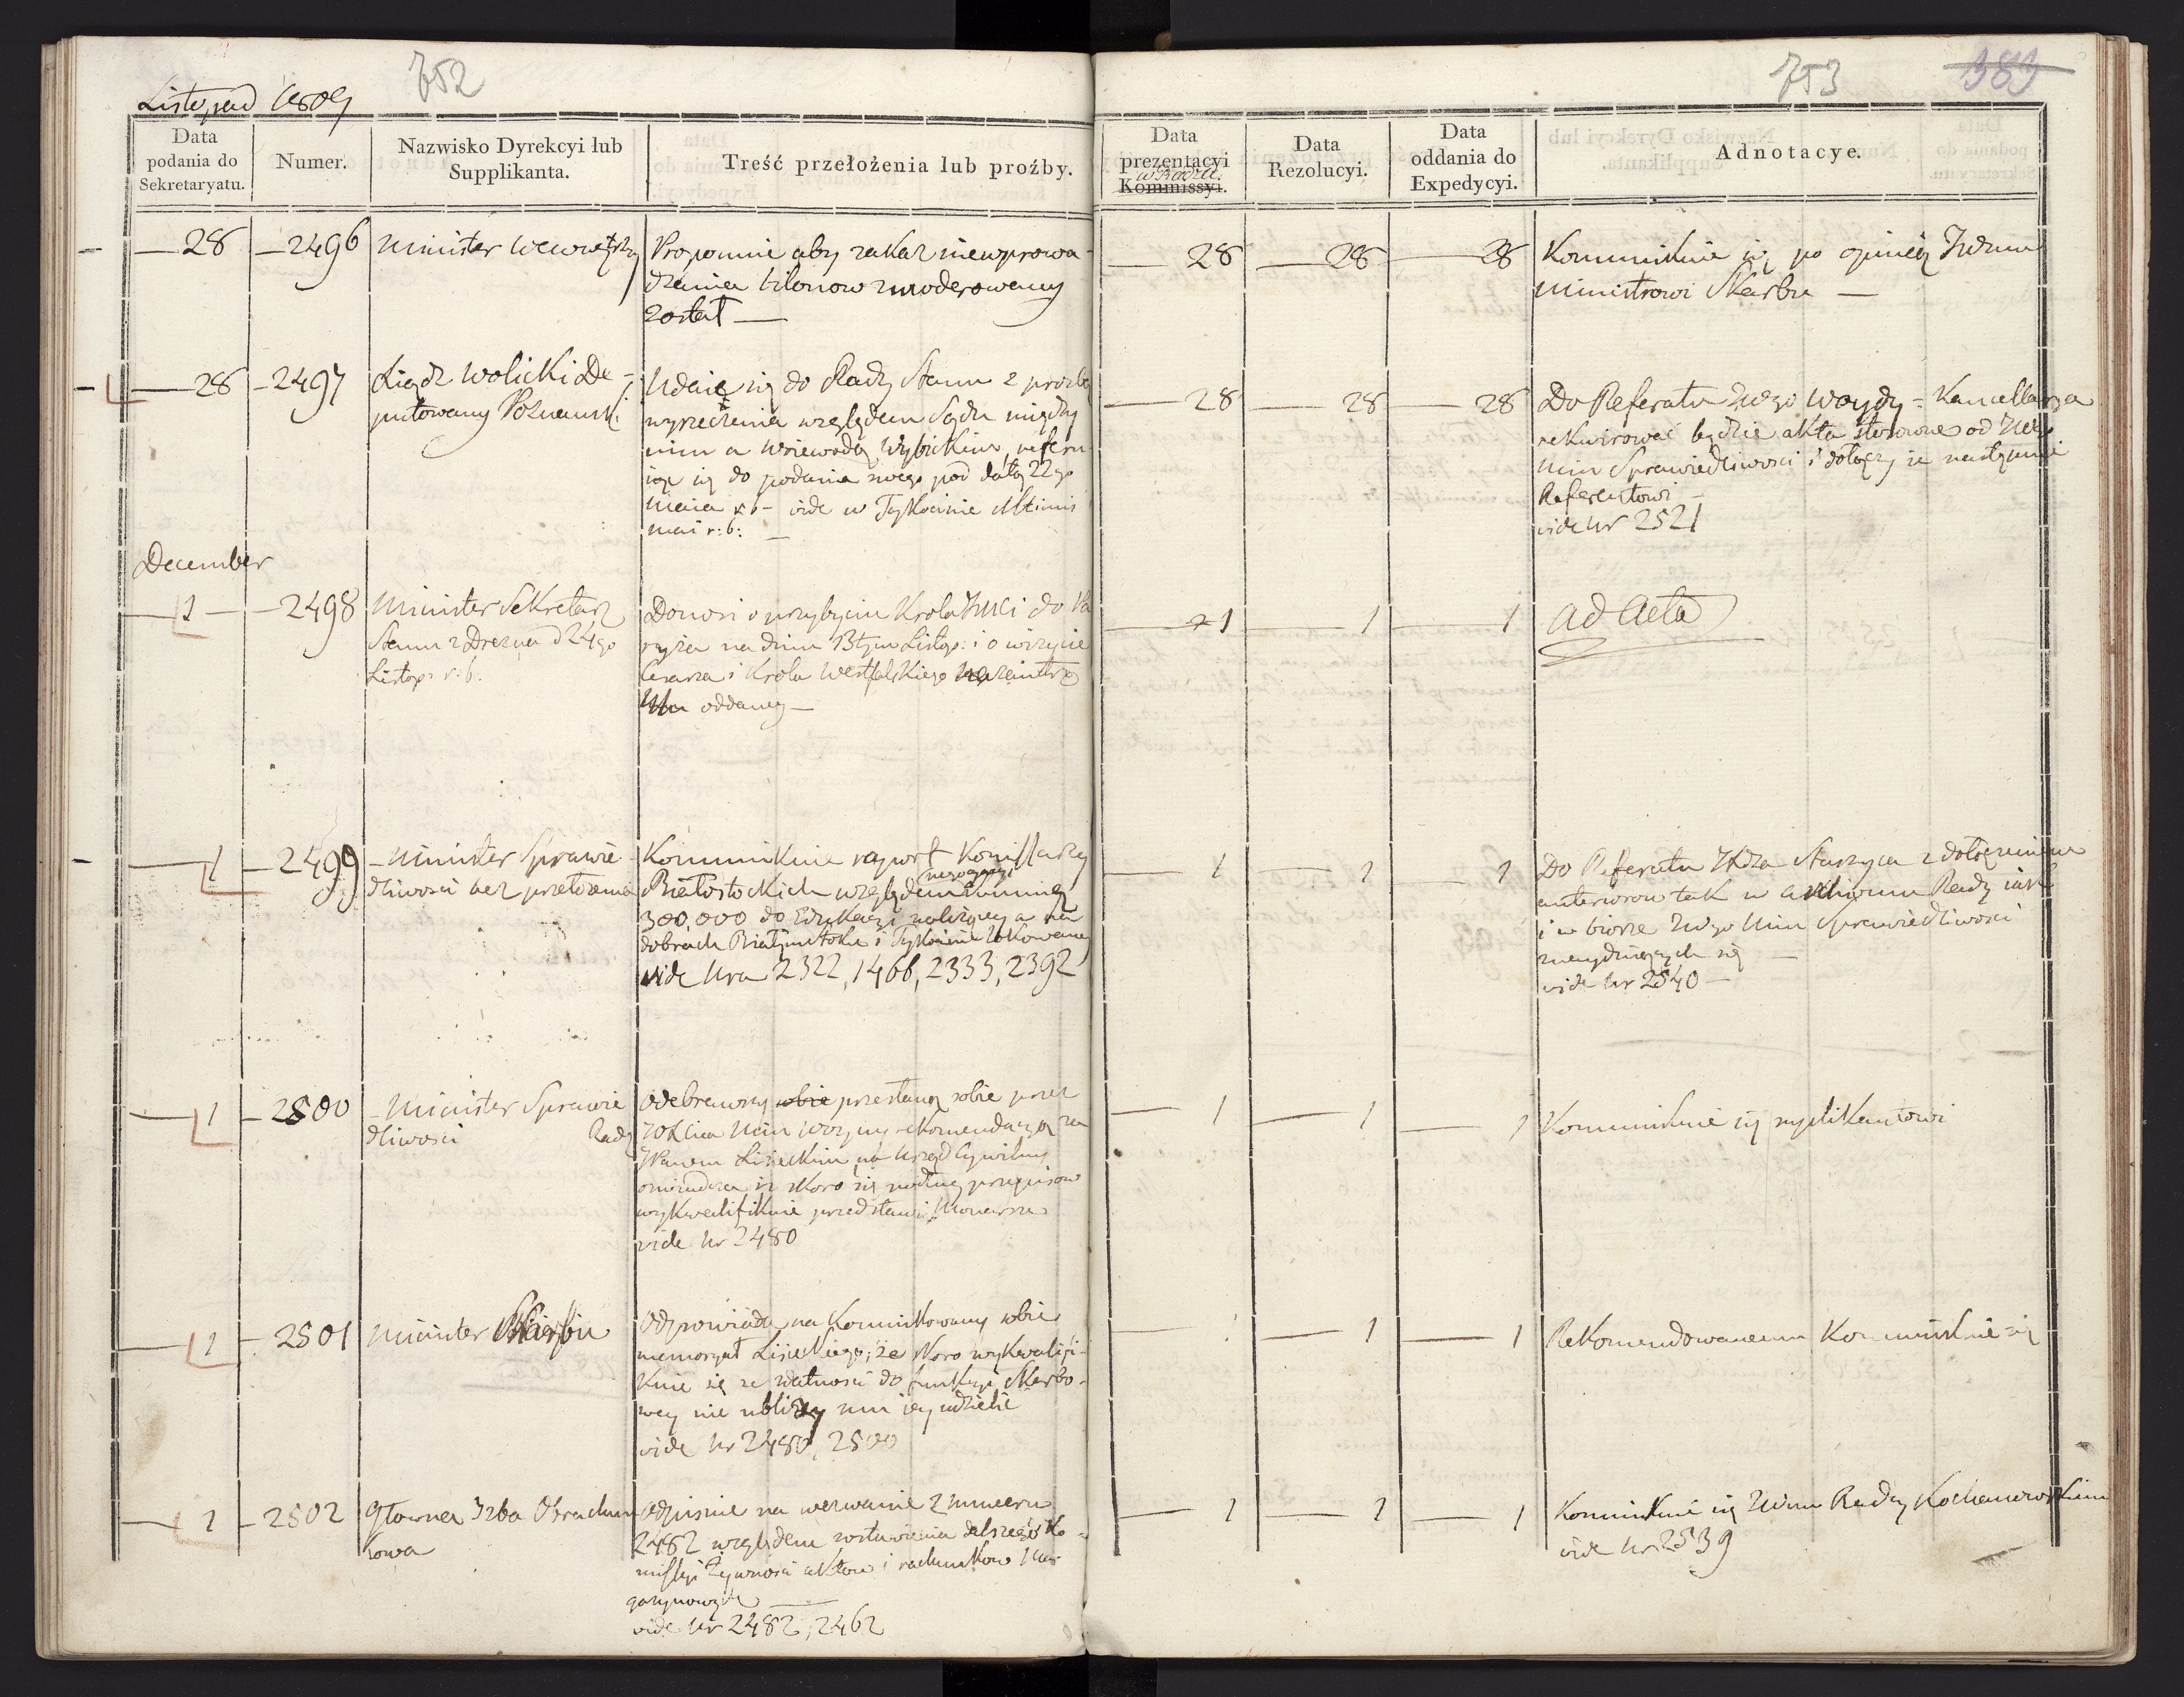 752
Listopad 1809
Data podania do Sekretaryatu.
Numer.
Nazwisko Dyrekcyi lub Supplikanta.
Treść przełożenia lub proźby.
28
2496
Minister Wewnętrzny
Proponuie aby zakaz niewprowa-
dzania bilonow zmoderowany
został —
28
2497
Xiądz Wolicki De-
putowany Poznanski
Udaie się do Rady Stanu z prozbą
wyrzeczenia względem Sądu między
nim a Woiewodą Wybickim, referu
iąc się do podania swego pod datą 22go
Maia r b – vide w Tykocinie ultimis
mai r: b: —
December
1
2498
Minister Sekretarz
Stanu z Drezna d 24go
Listop: r: b.
Donosi o przybyciu Krola JMci do Pa
ryża na dniu 13tym Listop: i o wizycie
Cesarza i Krola Westfalskiego
oddaney —
1
2499
Minister Sprawie
dliwosci bez przełożenia
Kommunikuie raport Kommissarzy
Białostockich względem summy
300,000 do Edukacyi należącey a na
dobrach Białymstoku i Tykocinie lokowaney
vide Nra 2322, 1466, 2333, 2392
1
2500
Minister Sprawie
dliwosci
Odebrawszy sobie przesłaną sobie przez
Rady
rekomendacyą za
JPanem Lisieckim na Urząd Cywilny
oswiadcza iż skoro się według przepisow
wykwalifikuie przedstawi Monarsze
vide Nr 2480
1
2501
Minister Skarbu
Odpowiada na kommunikowany sobie
memoryał Lisieckiego, że skoro wykwalifi-
kuie się ze zdatnosci do funkcyi Skarbo-
wey nie ubliży mu iey udzielić
vide Nr 2480, 2500
1
2502
Głowna Izba Obrachun
kowa
Odpisuie na wezwanie z numeru
2482 względem zostawienia dalszego Ko-
missyi Żywnosci aktow i rachunkow Ma-
gazynowych
vide Nr 2482, 2462
753
383
Data prezentacyi Kommissyi.
w Radzie.
Data Rezolucyi.
Data oddania do Expedycyi.
Adnotacye.
28
28
28
Kommunikuie się po opinię JWmu
Ministrowi Skarbu —
28
28
28
Do Referatu JWgo Woydy – Kancellarya
rekwirować będzie akta stosowne od JWgo
Min Sprawiedliwosci i dołączy ie następnie
Referentowi –
vide Nr 2521
1
1
1
ad Acta
1
1
1
Do Referatu JXdza Staszyca z dołączeniem
anteriorow tak w archivum Rady iak
i w biorze JWgo Min Sprawiedliwosci
znayduiących się —
vide Nr 2540 —
1
1
1
Kommunikuie się supplikantowi
1
1
1
Rekomendowanemu Kommunikuie się
1
1
1
Kommunikuie się JWmu Radcy Kochanowskiemu
vide Nr 2539